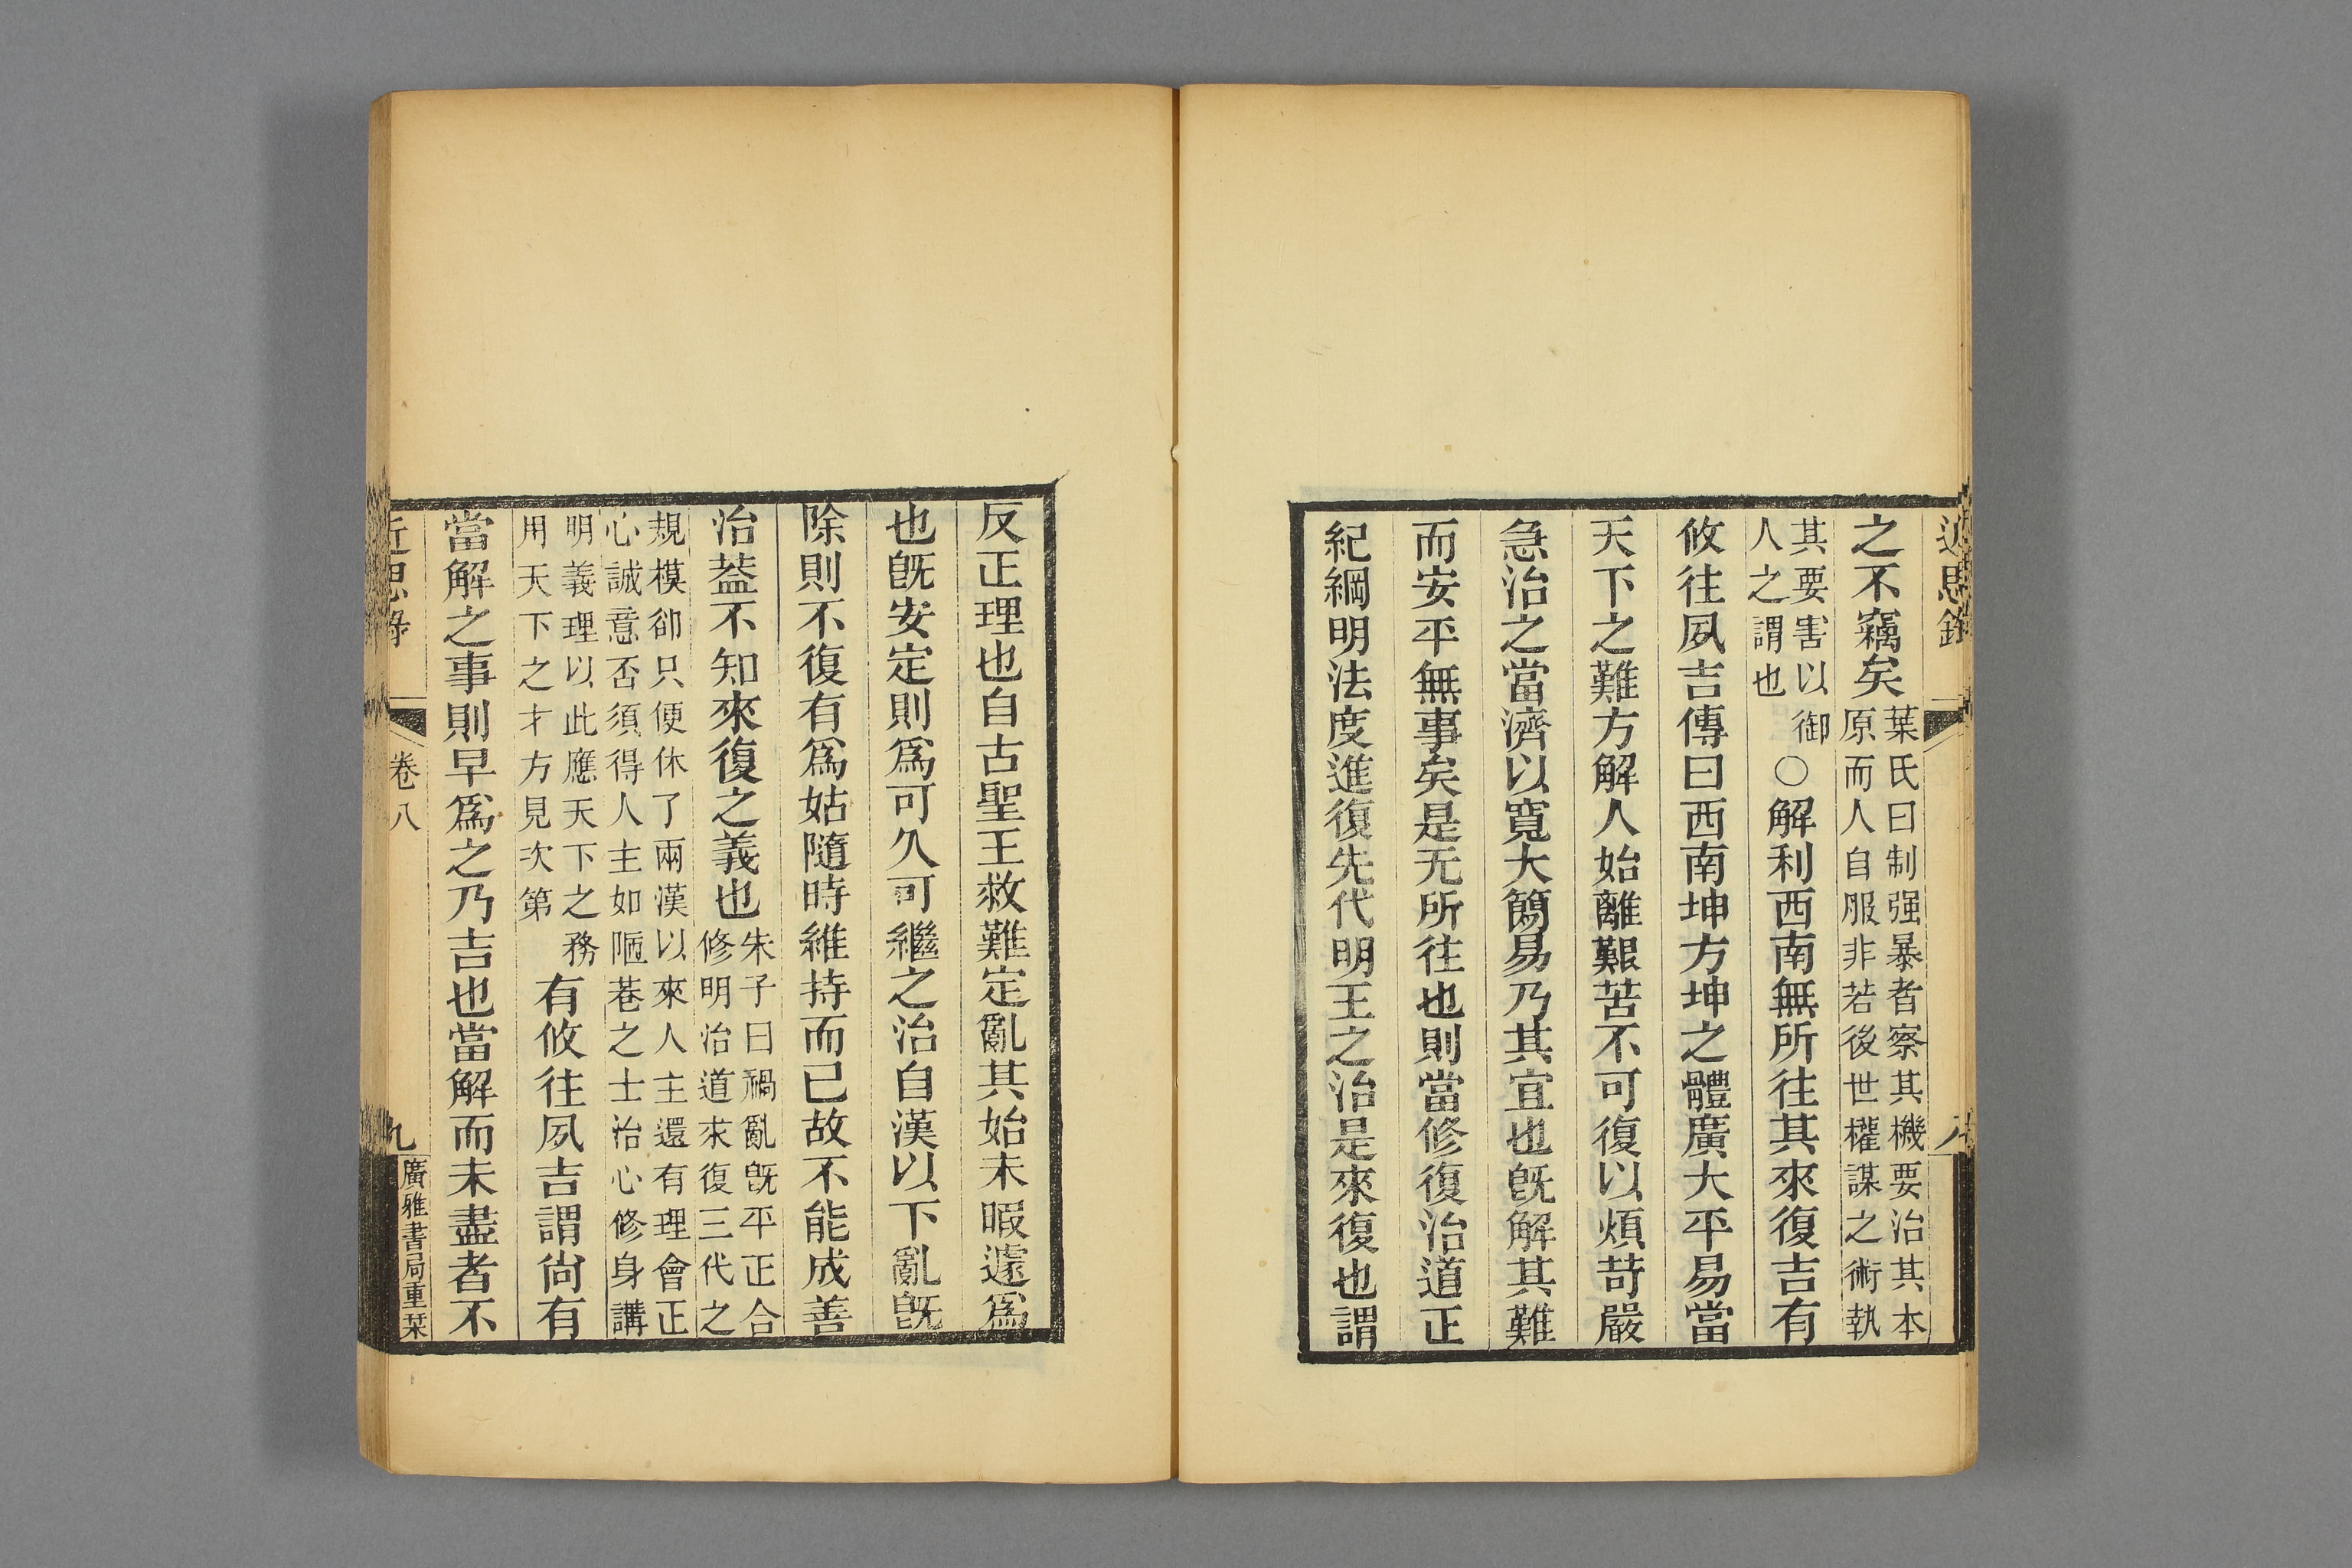 近思錄
之不竊矣葉氏曰制强暴者察其機要治其本
原而人自服非若後世權謀之術執
其要害以御
人之謂也
○解利西南無所往其來復吉有
攸往夙吉傳曰西南坤方坤之體廣大平易當
天下之難方解人始離艱苦不可復以煩苛嚴
急治之當濟以寬大簡易乃其宜也旣解其難
而安平無事矣是无所往也則當修復治道正
紀綱明法度進復先代明王之治是來復也謂
反正理也自古聖王救難定亂其始未暇遽爲
也旣安定則爲可久可繼之治自漢以下亂旣
除則不復有爲姑隨時維持而已故不能成善
治蓋不知來復之義也朱子曰禍亂旣平正合
修明治道求復三代之
規模卻只便休了兩漢以來人主還有理會正
心誠意否須得人主如陋巷之士治心修身講
明義理以此應天下之務
用天下之才方見次第
有攸往夙吉謂尙有
當解之事則早爲之乃吉也當解而未盡者不
近思錄
卷八
九
廣雅書局重栞